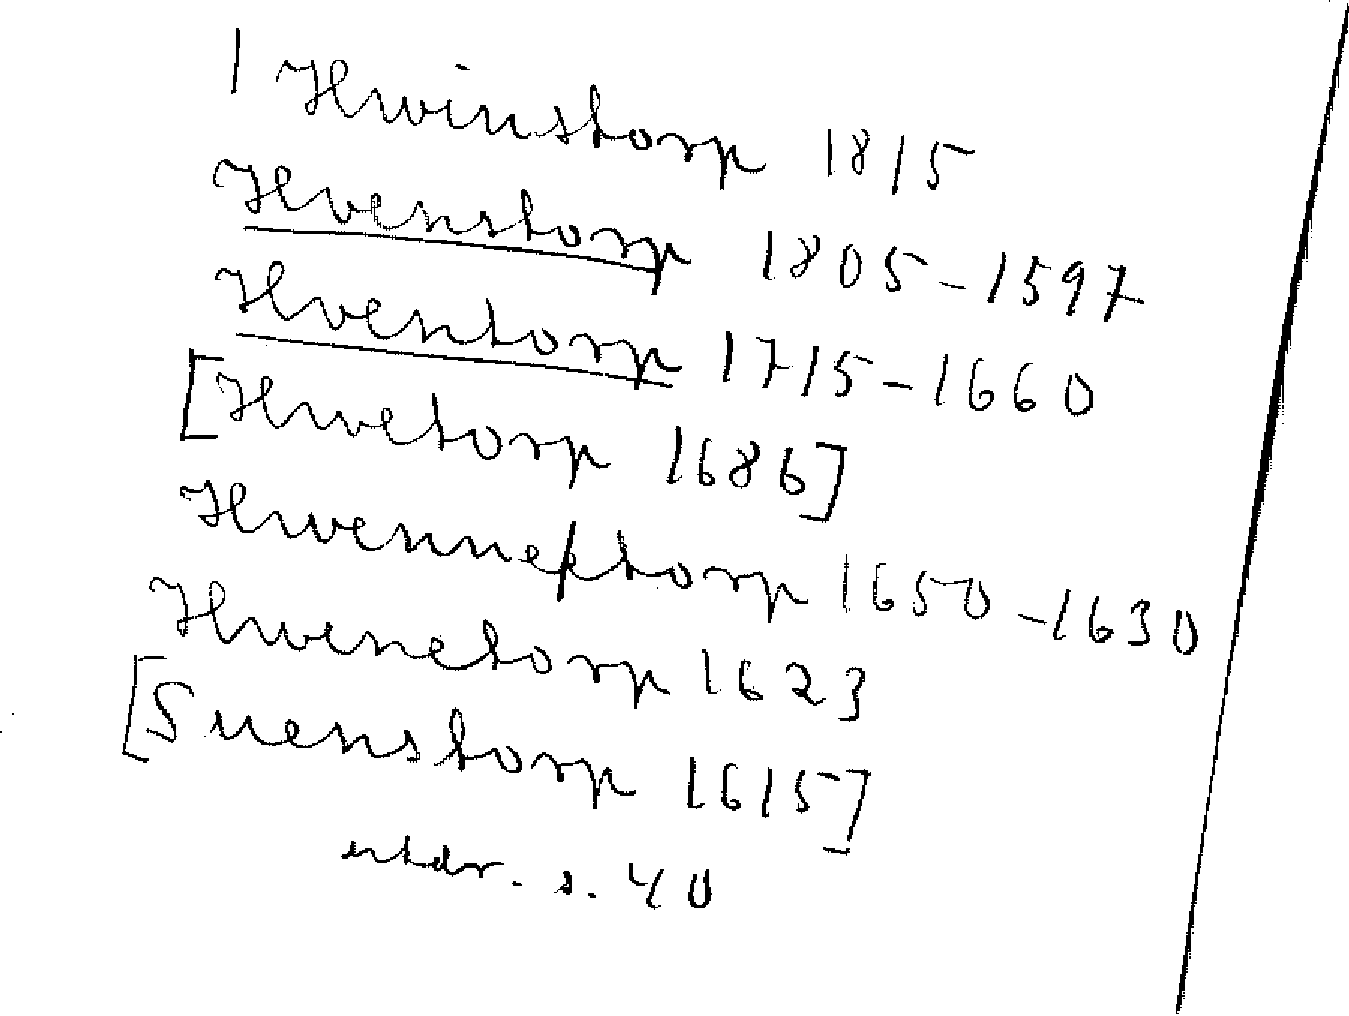 | Hwinstorp 1815
Hvenstorp 1805-1597
Hventorp 1715-1660
[Hwetorp 1686]
Hwennetorp 1650-1630
Hwenetorp 1623
[Suenstorp 1615]
utdr. s. 40